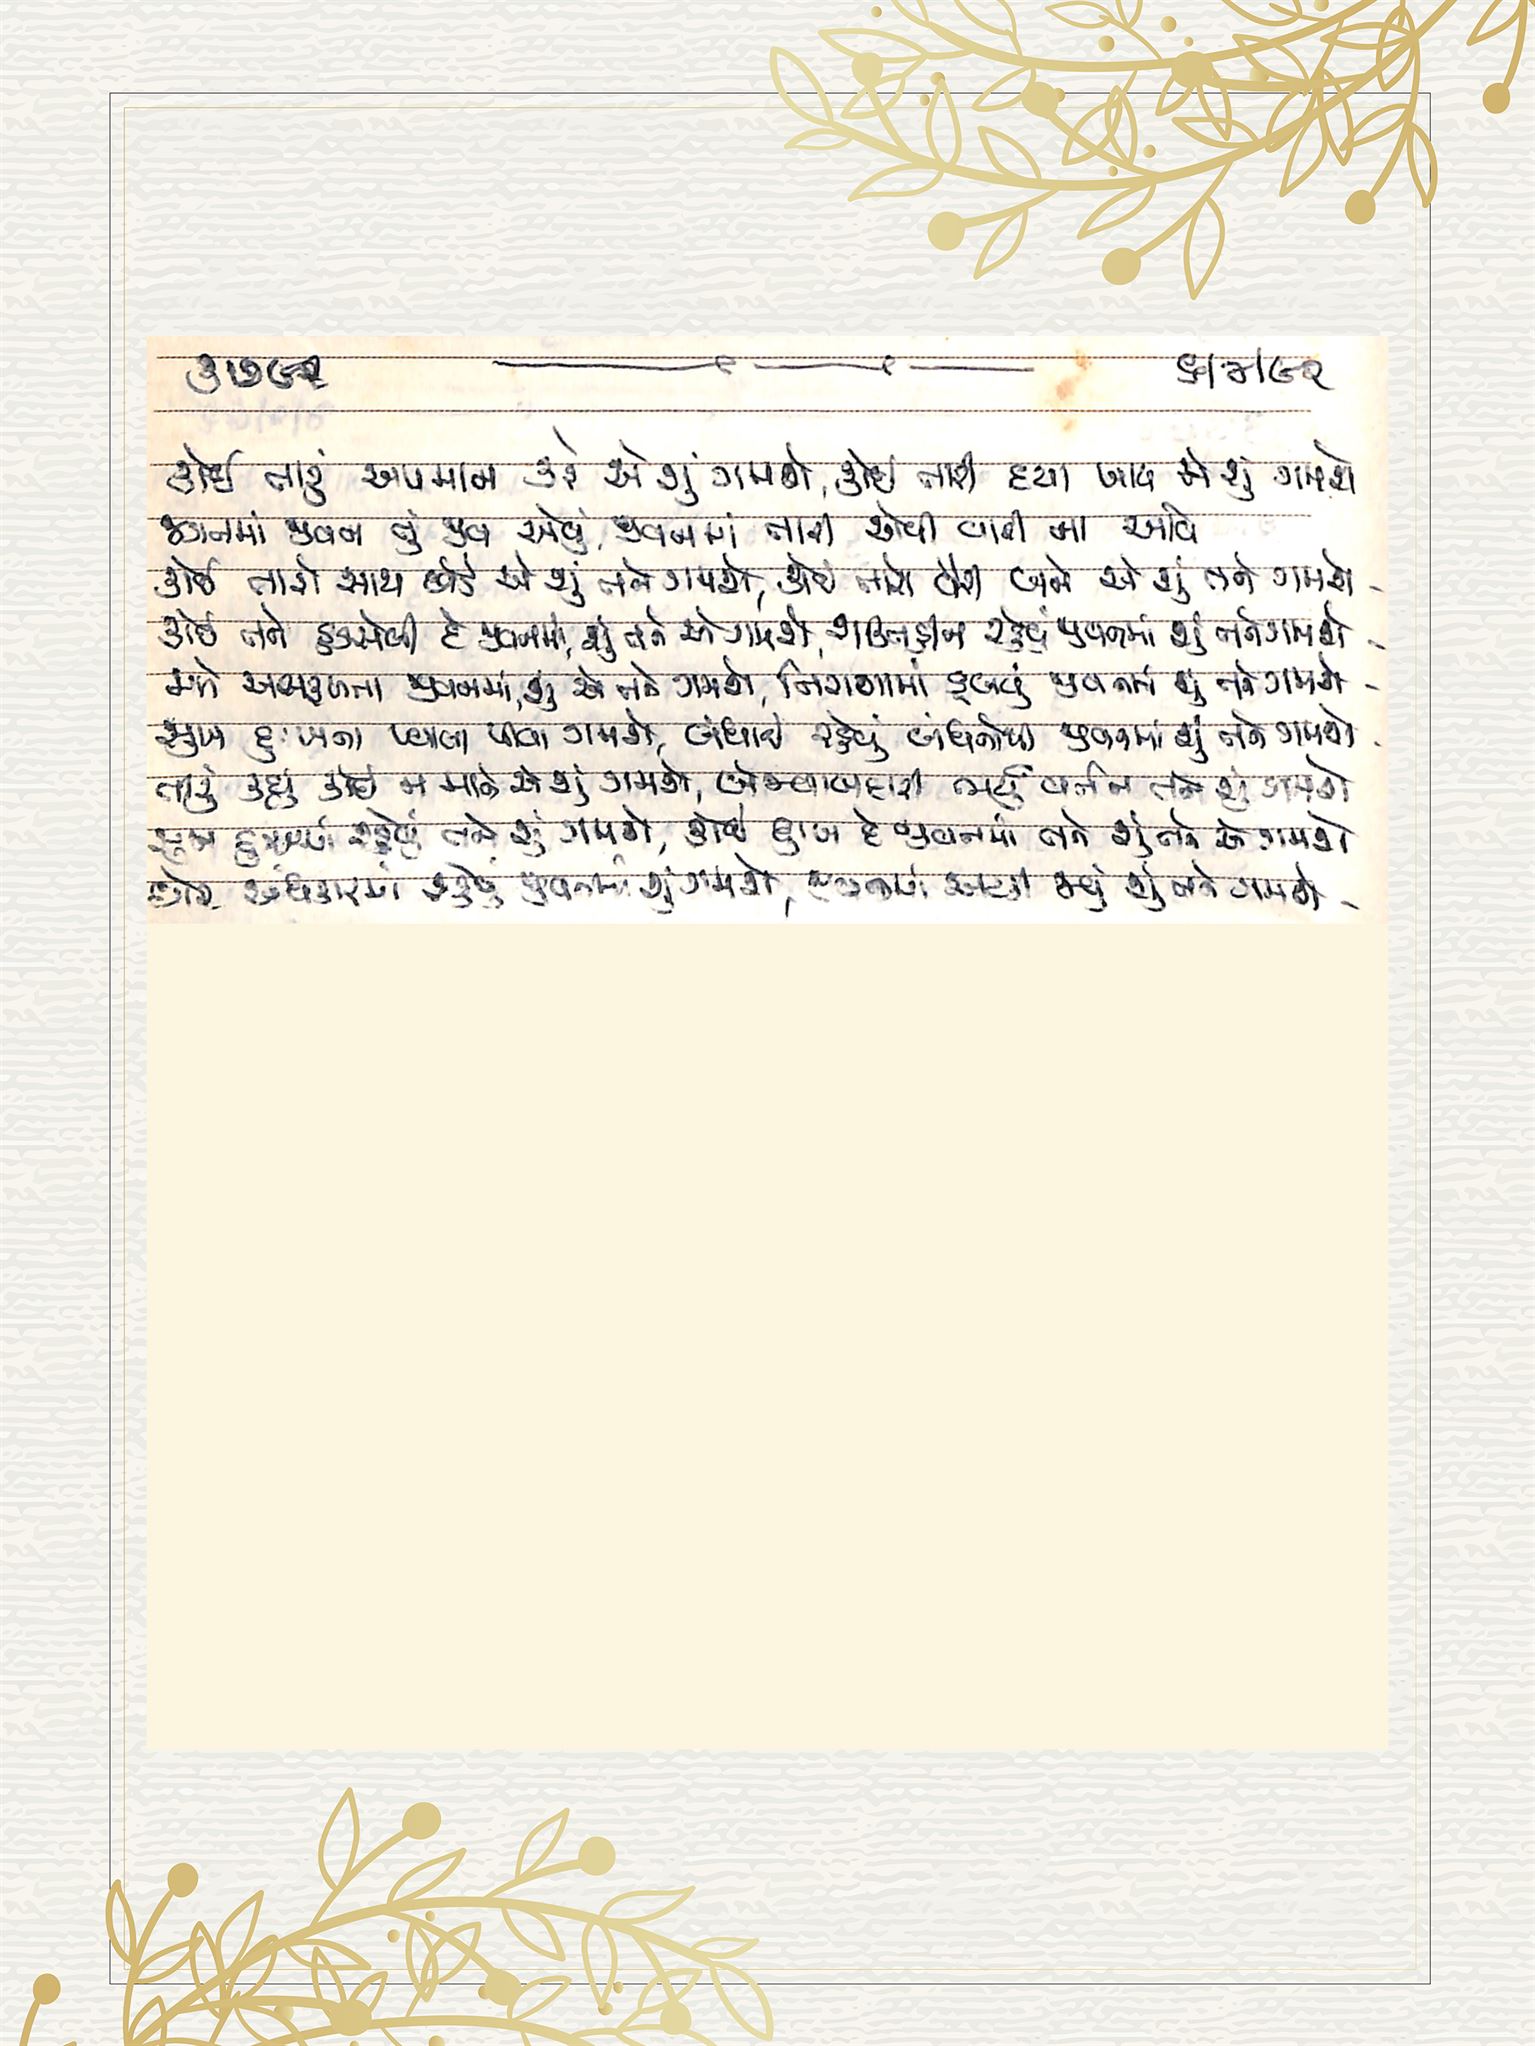 ૩૭૯૨ ૬/૪/૯૨
કોઈ તારું અપમાન કરે એ શું ગમશે, કોઈ તારી દયા ખાય એ શું ગમશે
જગતમાં જીવન તું જીવ એવું, જીવનમાં તારી એવી વારી ના આવે
કોઈ તારો સાથ છોડે એ શું તને ગમશે, કોઈ તારો વૈરી બને એ શું તને ગમશે -
કોઈ તને હડસેલી દે જીવનમાં, શું તને એ ગમશે, શક્તિહીન રહેવું જીવનમાં શું તને ગમશે -
મળે અસફળતા જીવનમાં, શું એ તને ગમશે, નિરાશામાં ડૂબવું જીવનમાં શું તને ગમશે -
સુખ દુઃખના પ્યાલા પીવા ગમશે, બંધાઈ રહેવું બંધનોથી જીવનમાં શું તને ગમશે -
તારું કહ્યું કોઈ ન માને એ શું ગમશે, બેજવાબદારી ભર્યું વર્તન તને શું ગમશે
સુખ રહેવું તને શું ગમશે, કોઈ દુઃખ દે જીવનમાં તને શું તને એ ગમશે
ઘોર અંધકારમાં રહેવું જીવનમાં શું ગમશે, અટકી જવું શું તને ગમશે -